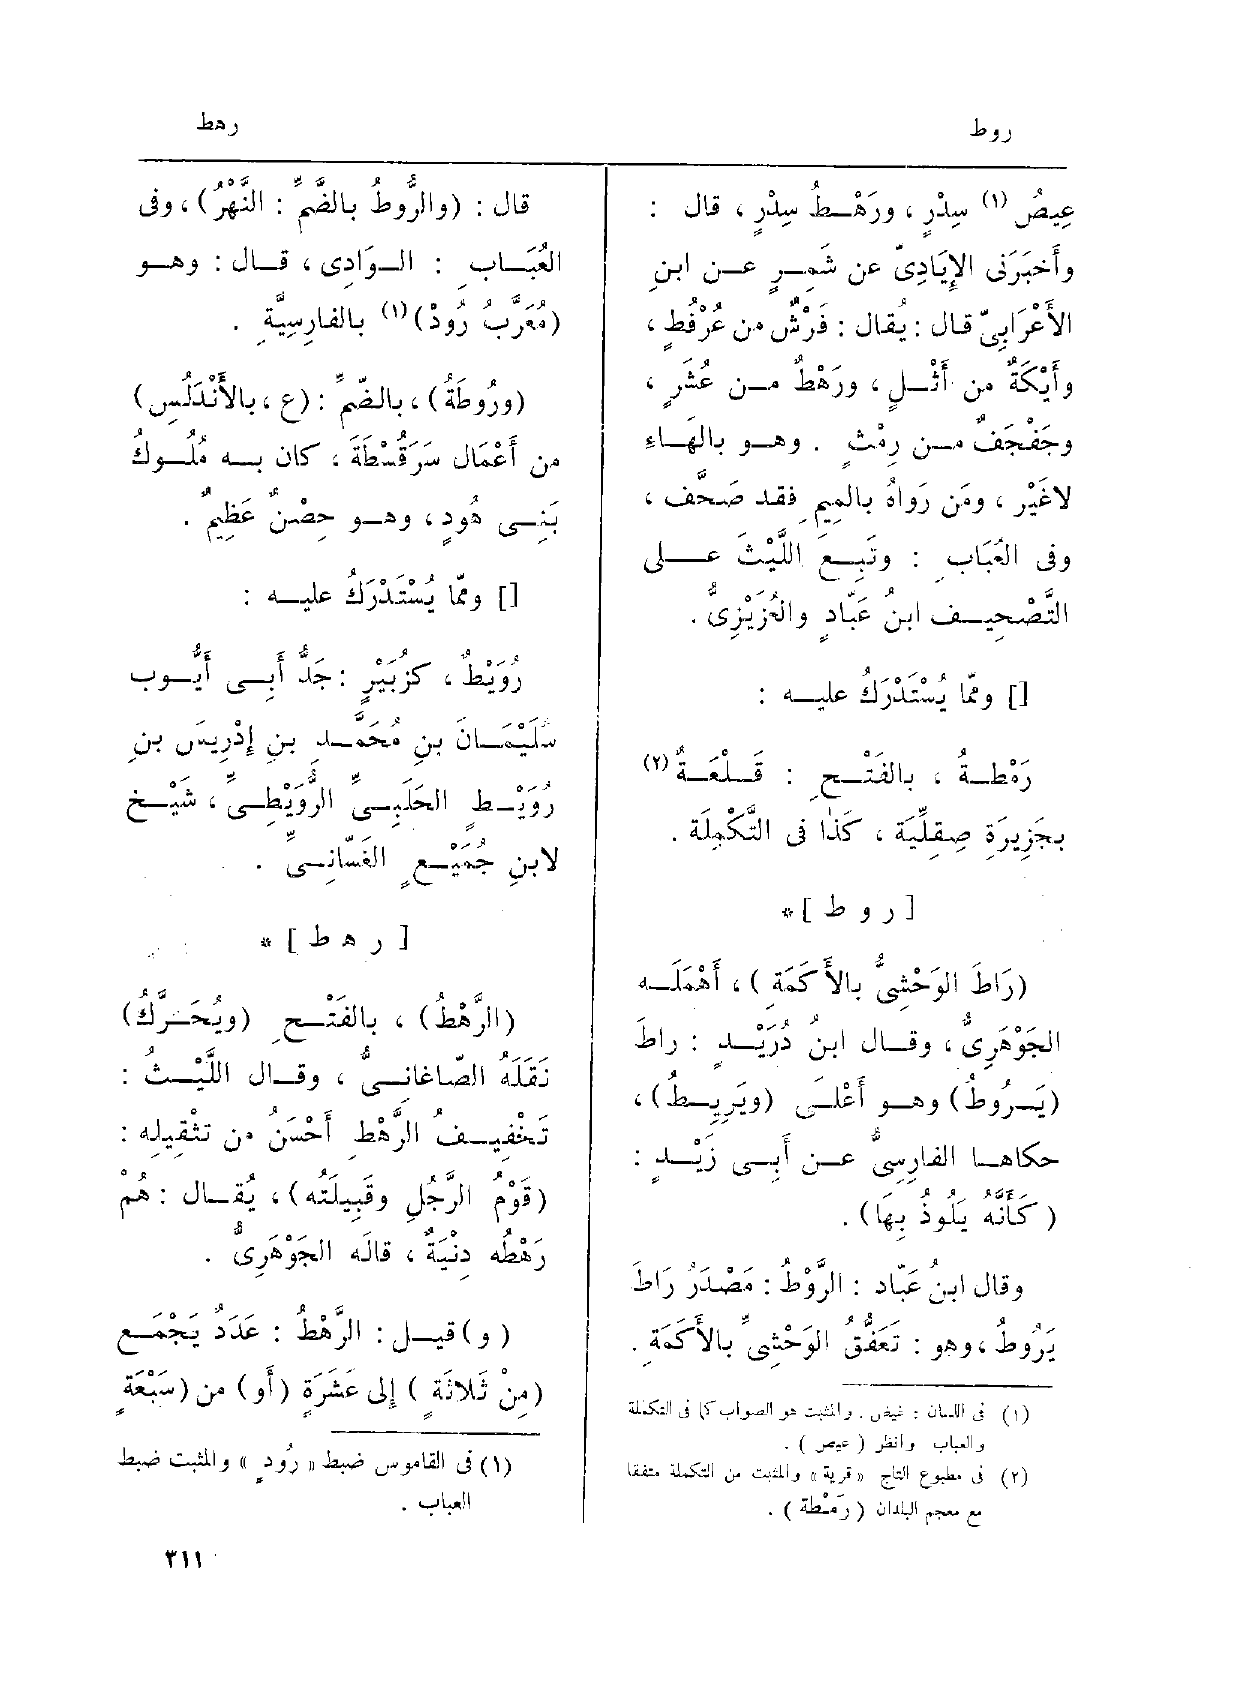 روط
رهط
عِيصُ (١) سِدْرٍ ، ورَهْـطُ سِدْرٍ ، قال :
وأَخبَرَنى الإِيَادِىّ عن شَمِـرٍ عـن ابنِ
الأَعْرَابِىّ قال : يُقال : فَرْشٌ من عُرْفُطٍ ،
وأَيْكَةٌ من أَثْـلٍ ، ورَهْطٌ مـن عُشَرٍ ،
وجَفْجَفٌ مـن رِمْثٍ . وهـو بالهَـاءِ
لاغَيْر ، ومَن رَواهُ بالمِيمِ فقد صَحَّف ،
وفى العُبَابِ : وتَبِـعَ اللَّيْثَ عـلى
التَّصْحِيـف ابنُ عَبّادٍ والعُزَيْزِىُّ .
[] وممّا يُسْتَدْرَكُ عليـه :
رَمْطـةُ ، بالفَتْـحِ : قَـلْعَـةٌ (٢)
بجَزِيرَةِ صِقِلِّيَة ، كَذٰا فى التَّكْمِلَة .
[ ر و ط ] *
(رَاطَ الوَحْشِىُّ بالأَكَمَةِ ) ، أَهْمَلَـه
الجَوْهَرِىُّ ، وقـال ابنُ دُرَيْـدٍ : راطَ
(يَـرُوطُ) وهـو أَعْلَـى (ويَرِيـطُ) ،
حكاهـا الفارِسِىُّ عـن أَبِـى زَيْـدٍ :
( كَأَنَّهُ يَلُوذُ بِهَا) .
وقال ابنُ عَبّاد : الرَّوْطُ : مَصْدَرُ رَاطَ
يَرُوطُ ، وهو : تَعَفُّقُ الوَحْشِىِّ بالأَكَمَةِ .
(١) فى اللسان : غيض . والمثبت هو الصواب كما فى التكملة
والعباب وانظر ( عيص ) .
(٢) فى مطبوع التاج « قرية » والمثبت من التكملة متفقا
مع معجم البلدان ( رَمْطة ) .
قال : (والرُّوطُ بالضَّمِّ : النَّهْرُ) ، وفى
العُبَـابِ : الـوَادِى ، قـال : وهـو
(مُعَرَّبُ رُوذْ) (١) بالفارِسِيَّةِ .
(ورُوطَةُ) ، بالضّمِّ : (ع ، بالأَنْدَلُسِ)
من أَعْمَال سَرَقُسْطَةَ ، كان بـه مُلُـوكُ
بَنِـى هُودٍ ، وهـو حِصْنٌ عَظِيمٌ .
[] وممّا يُسْتَدْرَكُ عليـه :
رُوَيْطٌ ، كزُبَيْرٍ : جَدُّ أَبِـى أَيُّـوب
سُلَيْمَـانَ بنِ مُحَمَّـدِ بنِ إِدْرِيسَ بنِ
رُوَيْـطٍ الحَلَبِـىِّ الرُّوَيْطِـىِّ ، شَيْـخ
لابنِ جُمَيْـعٍ الغَسّانِـىِّ .
[ ر هـ ط ] *
(الرَّهْطُ) ، بالفَتْـحِ (ويُحَـرَّكُ)
نَقَلَهُ الصّاغانِـىُّ ، وقـال اللَّيْـثُ :
تَخْفِيـفُ الرَّهْطِ أَحْسَنُ من تثْقِيلِه :
(قَوْمُ الرَّجُلِ وقَبِيلَتُه) ، يُقـال : هُمْ
رَهْطُه دِنْيَةٌ ، قالَه الجَوْهَرِىُّ .
( و) قيـل : الرَّهْطُ : عَدَدٌ يَجْمَـع
(مِنْ ثَلاثَةٍ ) إِلى عَشَرَةٍ (أَو) من (سَبْعَةٍ
(١) فى القاموس ضبط « رُودٍ » والمثبت ضبط
العباب .
٣١١